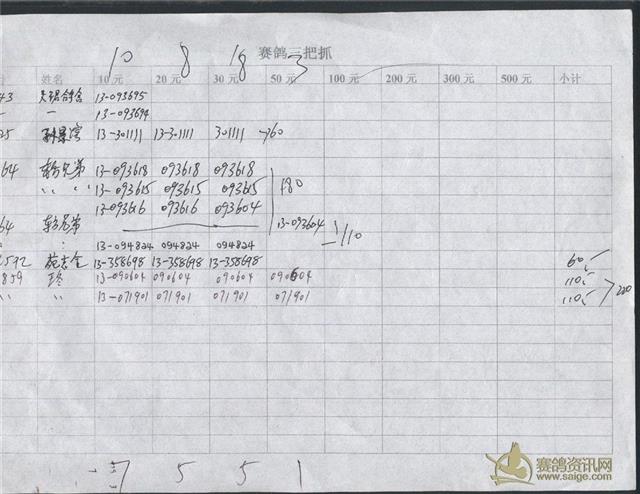 10 8 18 3
赛鸽三把抓
姓名 10元 20元 30元 50元 100元 200元 300元 500元 小计
43 13-093695
13-093694
25 13-301111 13-301111 301111 60
64 兄弟 13-093618 093618 093618
" " 13-093615 093615 093615 180
13-093616 093616 093604
64 兄弟 13-093604
13-094824 094824 094824 110
2592 苑志全 13-358698 13-358698 13-358698 60
859 13-090604 090604 090604 090604 110
" " 13-071901 071901 071901 071901 110 220
7 5 5 1
赛鸽资讯网
www.saige.com